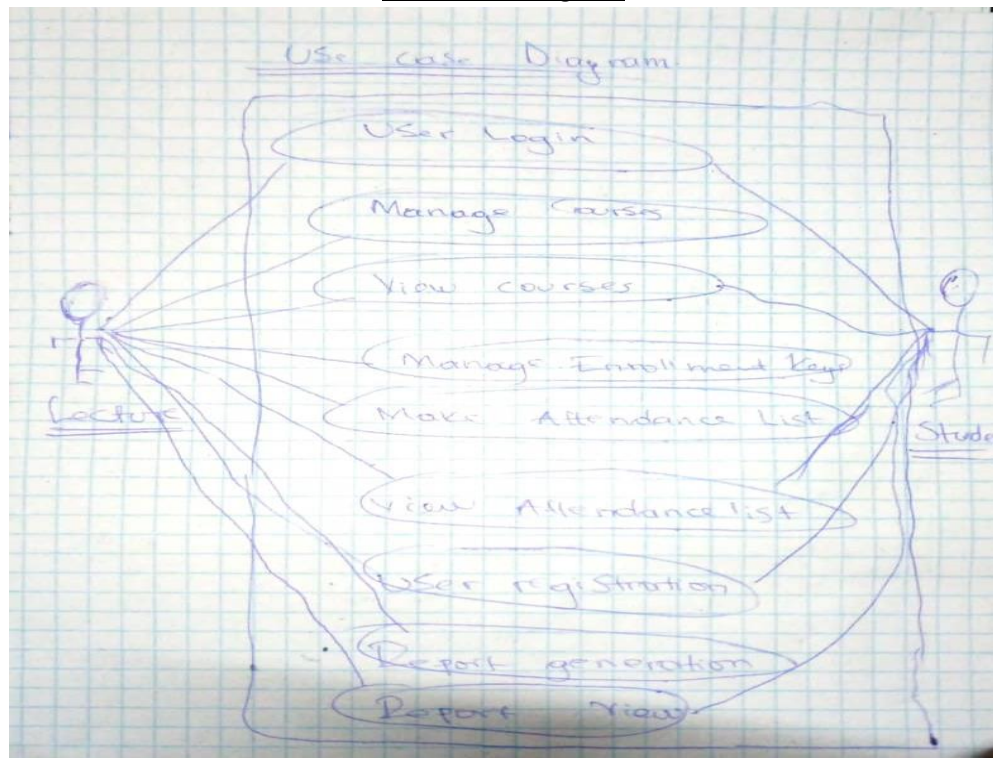 Use case Diagram
User Login
Manage Courses
View courses
Manage Enrollment Keys
Lecture
Make Attendance List
Stude
View Attendance list
User registration
Report generation
Report View